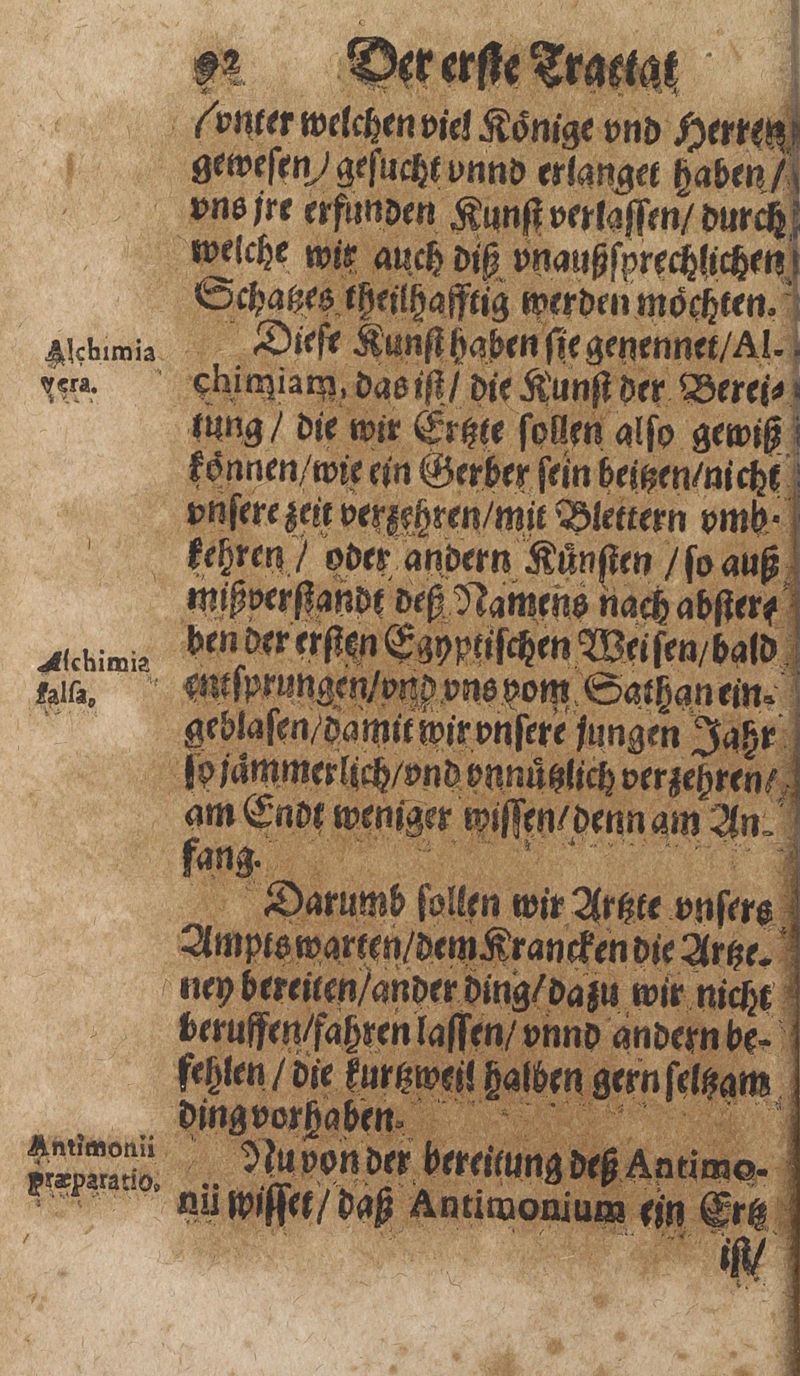 92 Der erste Tractat
(vnter welchen viel Könige vnd Herren
gewesen) gesucht vnnd erlanget haben /
vns jre erfunden Kunst verlassen / durch
welche wir auch diß vnaußsprechlichen
Schatzes theilhafftig werden möchten.
Alchimia vera.
Diese Kunst haben sie genennet / Al-
chimiam, das ist / die Kunst der Berei-
tung / die wir Ertzte sollen also gewiß
können / wie ein Gerber sein beitzen / nicht
vnsere zeit verzehren / mit Blettern vmb-
kehren / oder andern Künsten / so auß
mißverstandt deß Namens nach abster-
ben der ersten Egyptischen Weisen / bald
Alchimia falsa,
entsprungen / vnd vns vom Sathan ein-
geblasen / damit wir vnsere jungen Jahr
so jämmerlich / vnd vnnützlich verzehren /
am Endt weniger wissen / denn am An-
fang.
Darumb sollen wir Artzte vnsers
Ampts warten / dem Krancken die Artze-
ney bereiten / ander ding / dazu wir nicht
beruffen / fahren lassen / vnnd andern be-
fehlen / die kurtzweil halben gern seltzam
ding vorhaben.
Antimonii præparatio,
Nu von der bereitung deß Antimo-
nii wisset / daß Antimonium ein Ertz
ist /